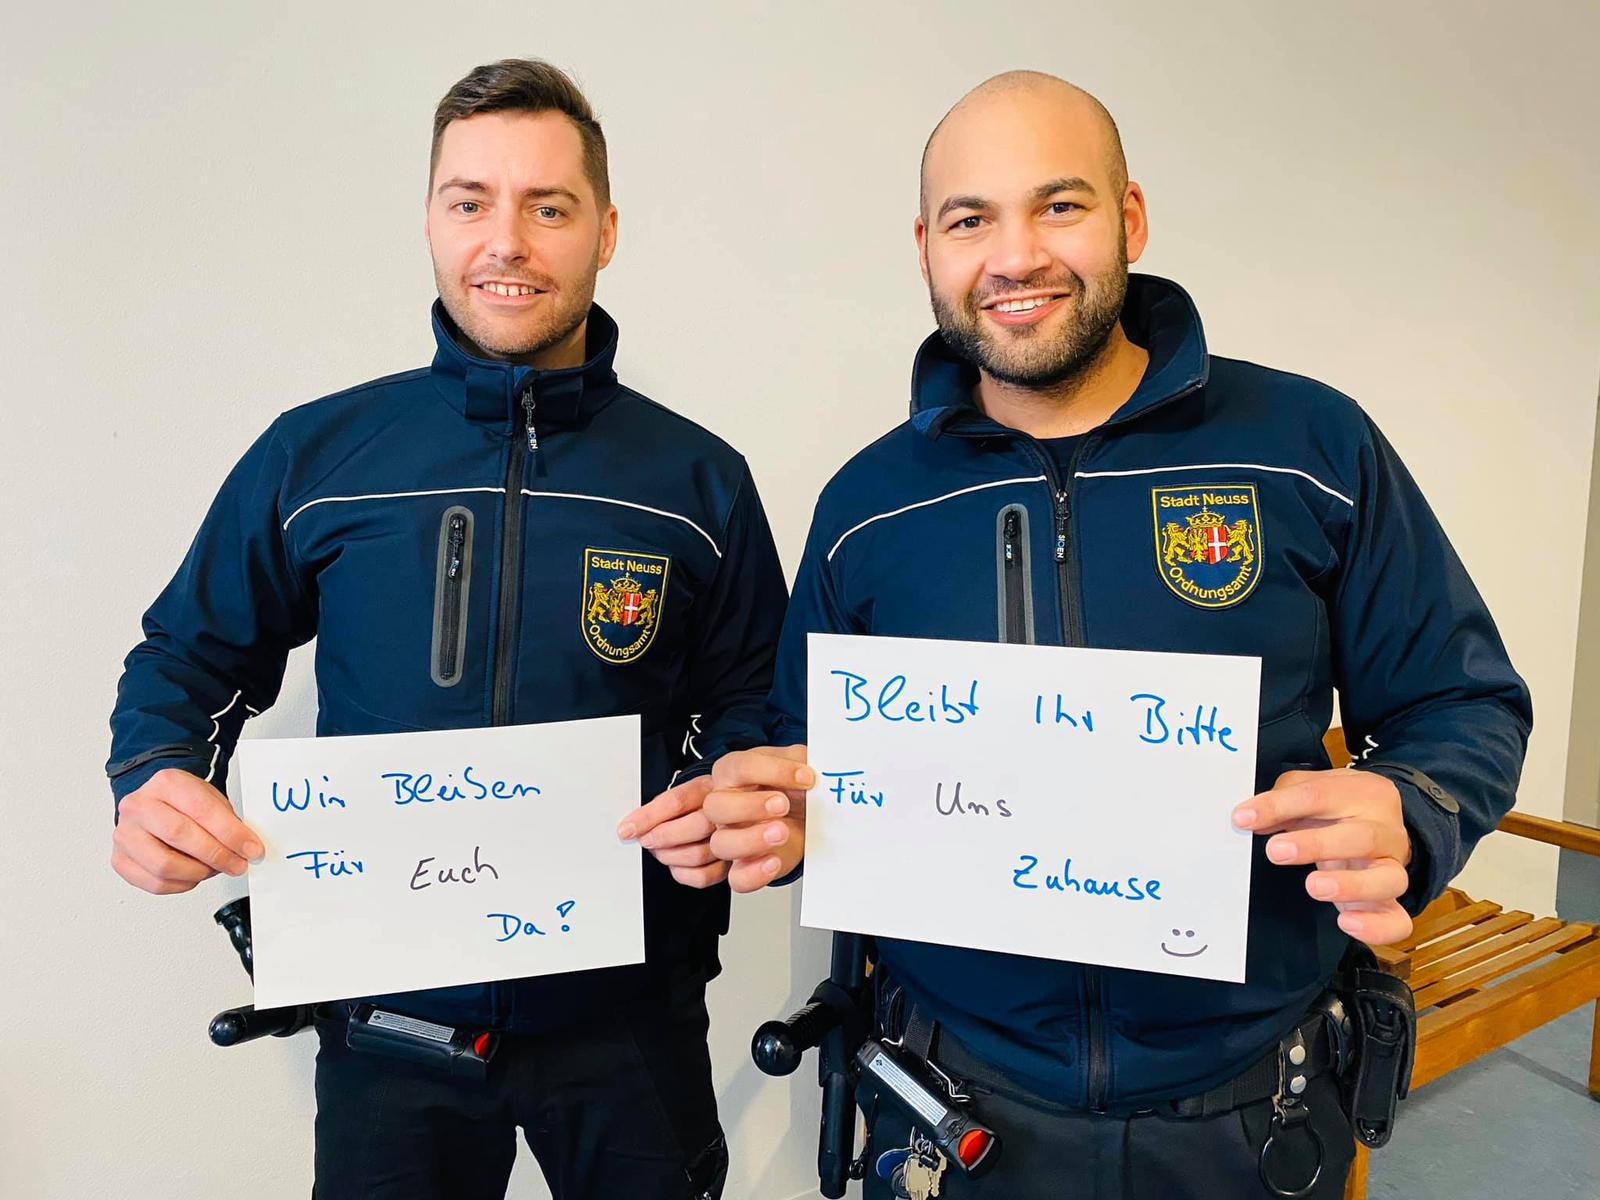 Wir Bleiben
Für Euch
Da!
Bleibt Ihr Bitte
Für Uns
Zuhause
Stadt Neuss
Ordnungsamt
Stadt Neuss
Ordnungsamt
SIOEN
SIOEN